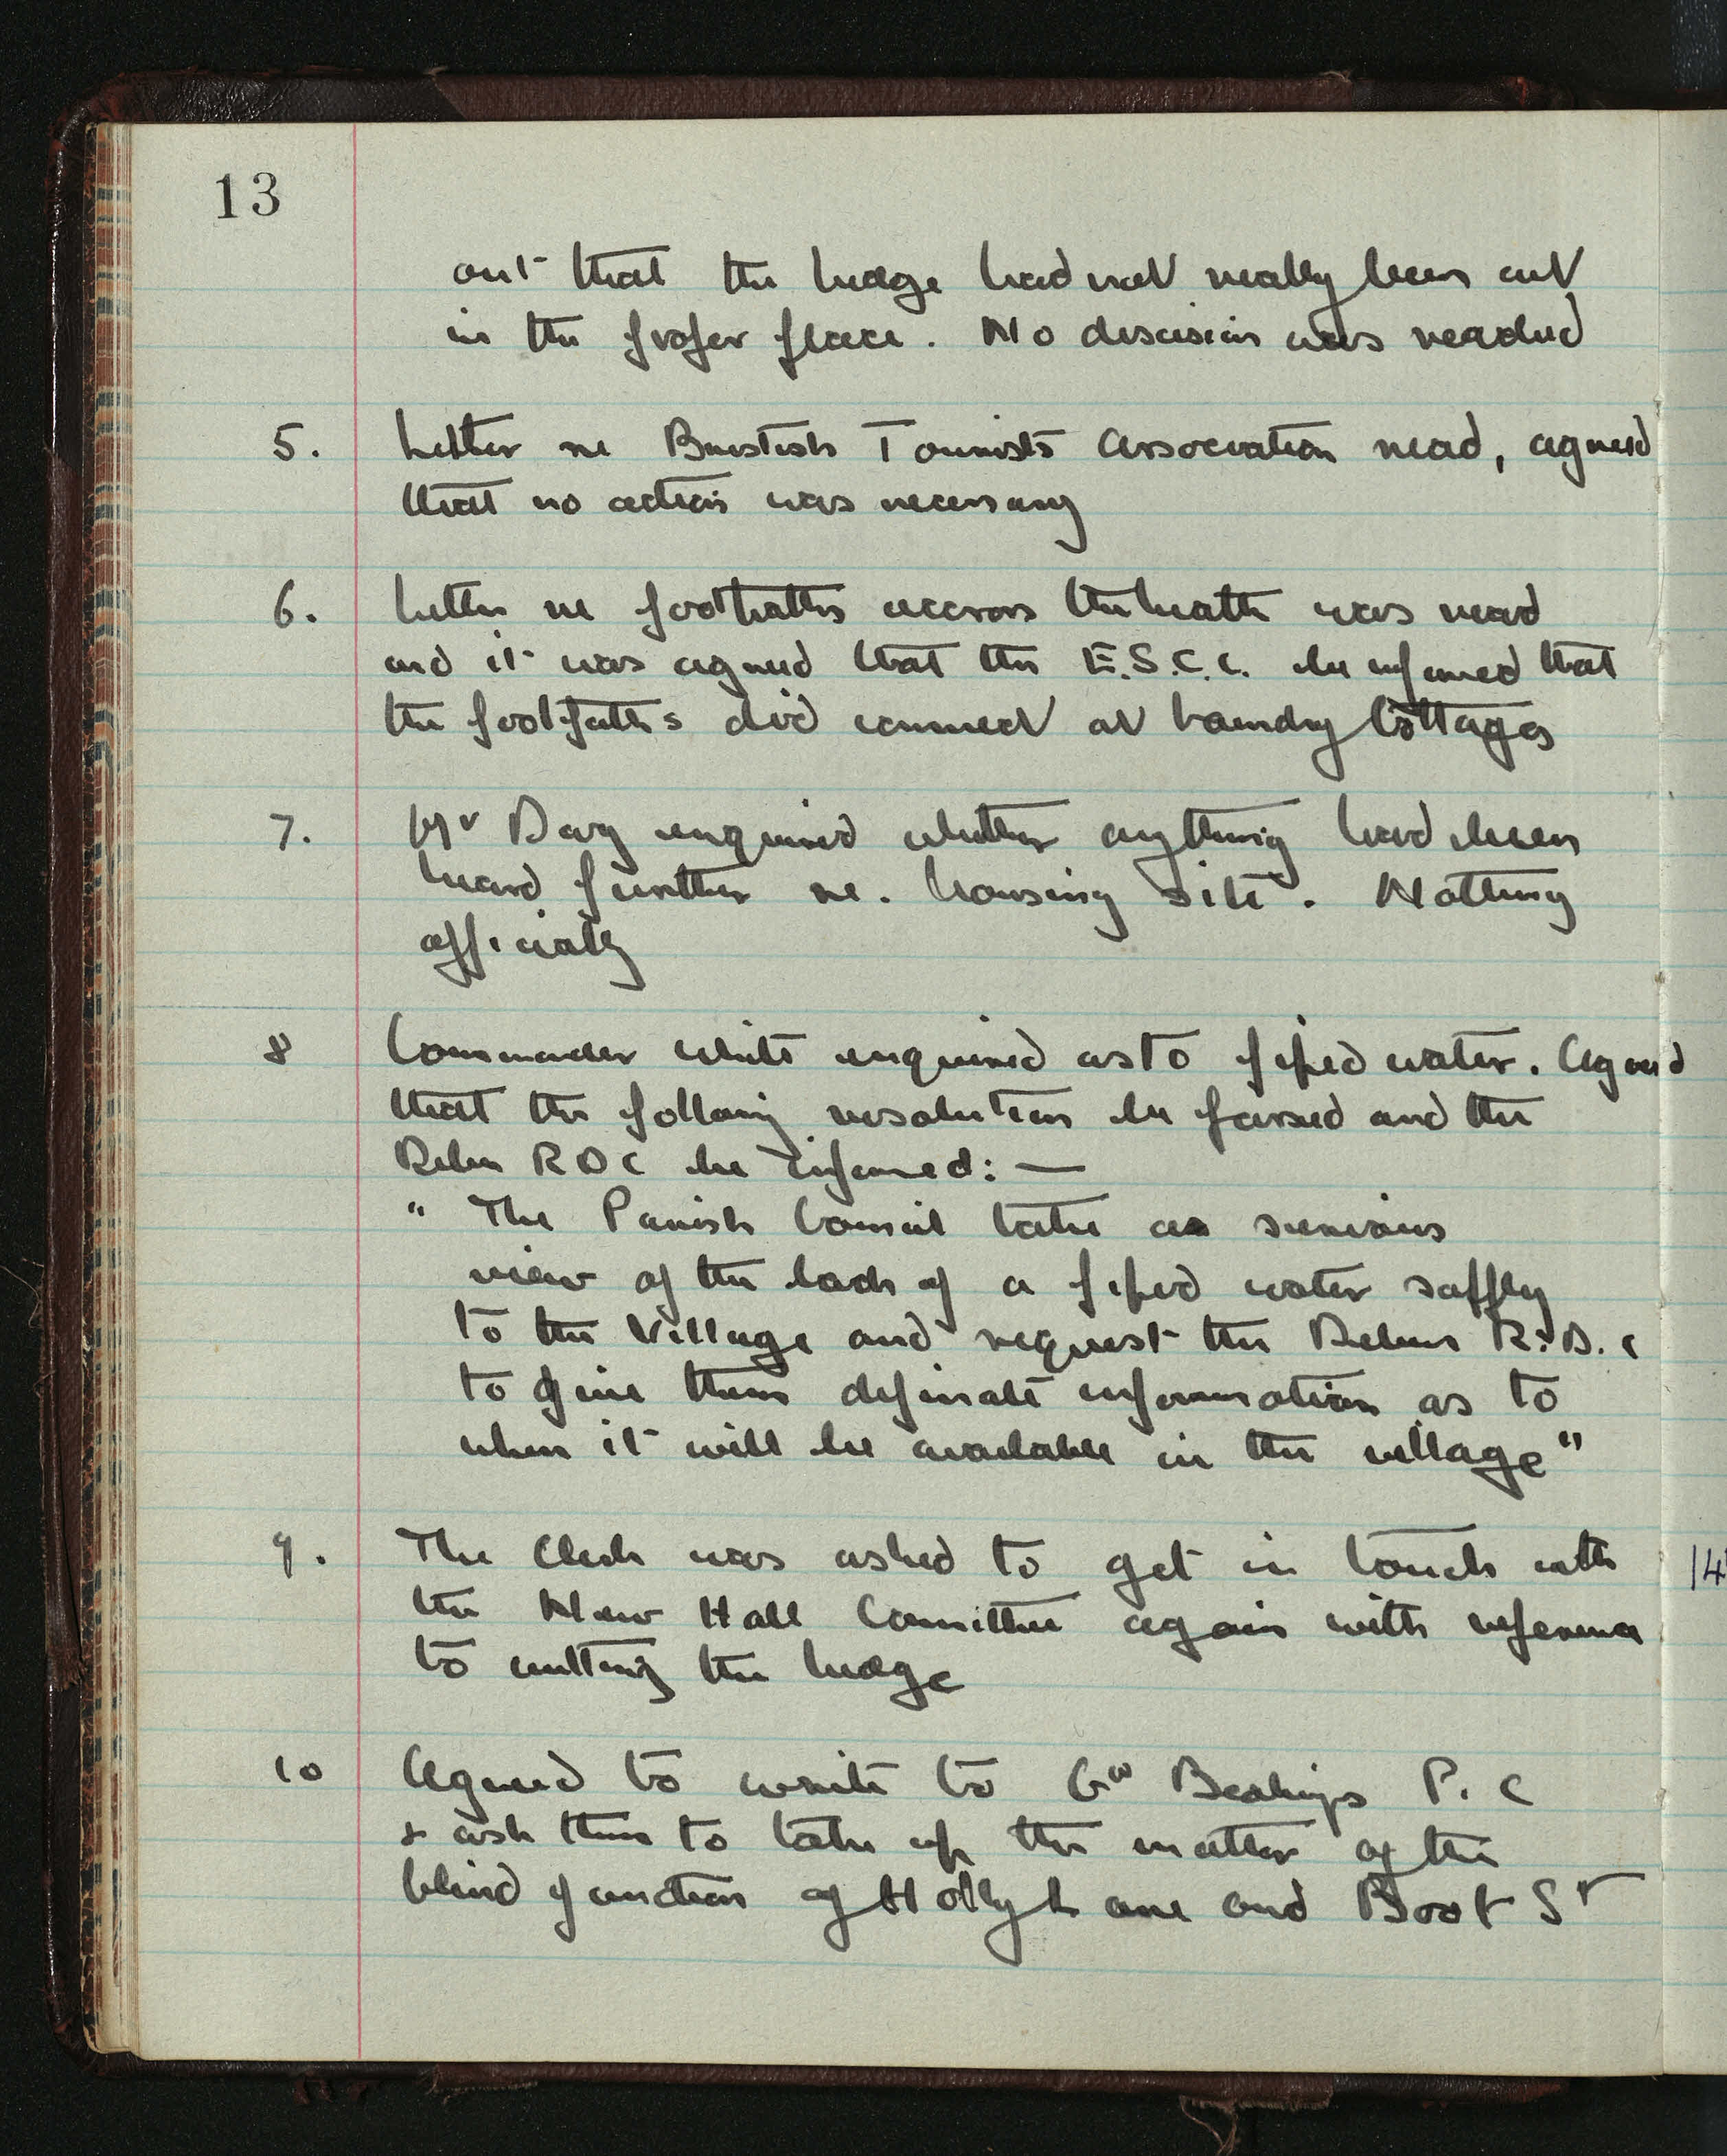 13
out that the hedge had not really been cut
in the proper place. No descision was reached
5. Letter re Bristish Tourists Association read, agreed
that no action was necessary
6. Letter re footpaths accross the heath was read
and it was agreed that the E.S.C.C. be informed that
the footpaths did connect at Laundry Cottages
7. Mr Day enquired whether anything had been
heard further re. housing site. Nothing
officially
8 Commander White enquired as to piped water. Agreed
that the following resolution be passed and the
Deben RDC be informed: —
" The Parish Council take a serious
view of the lack of a piped water supply
to the Village and request the Deben R.D.C
to give them definate information as to
when it will be available in the village"
9. The Clerk was asked to get in touch with
the New Hall Committee again with reference
to cutting the hedge
10 Agreed to write to Gt Bealings P. C
& ask them to take up the matter of the
blind junction of Holly Lane and Boot St
14